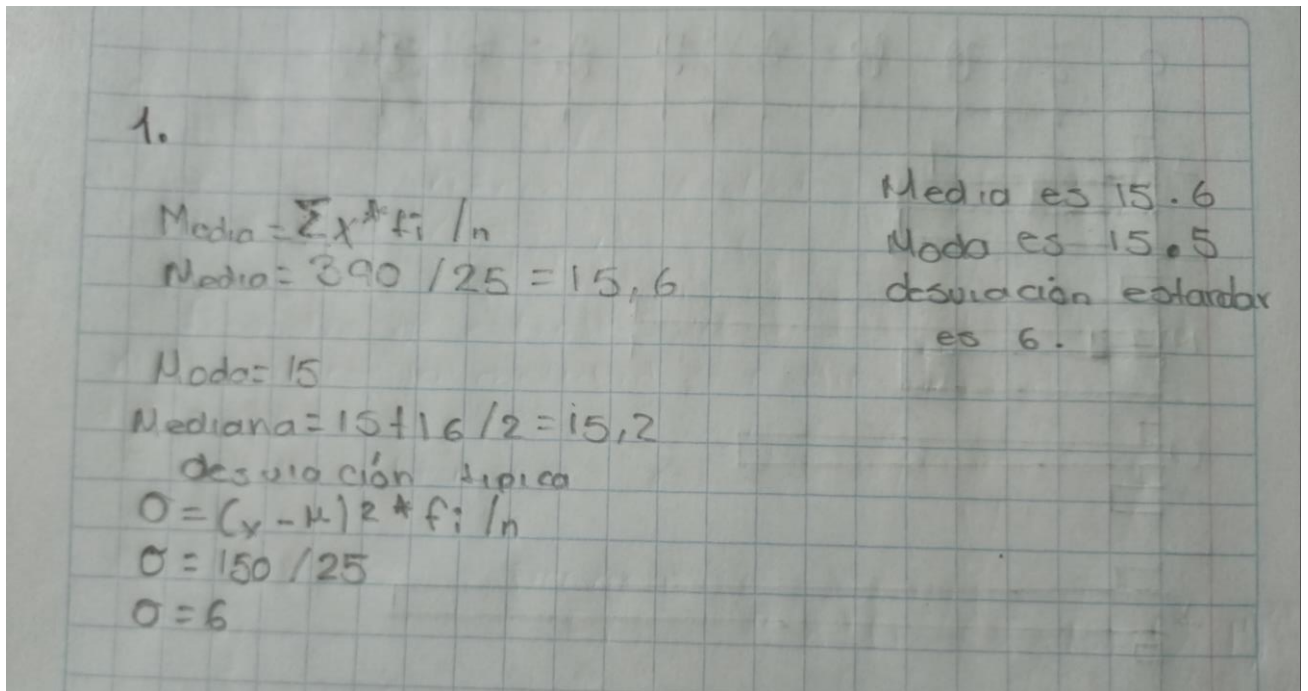 1.
Media = Σx*fi /n
Media = 390 /25 = 15,6
Moda = 15
Mediana = 15+16 /2 = 15,2
desviación tipica
σ = (x - μ)2 * fi /n
σ = 150 /25
σ = 6
Media es 15.6
Moda es 15.5
desviación estardar
es 6.